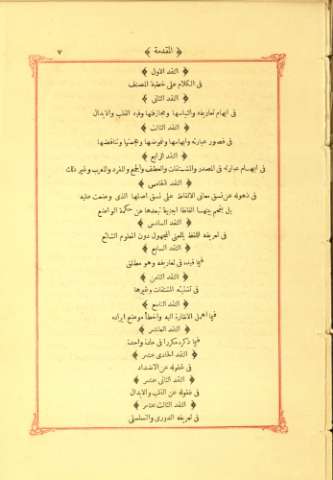 ﴿ المقدمة ﴾ ٧
﴿ النقد الاول ﴾
فى الكلام على خطبة المصنف
﴿ النقد الثانى ﴾
فى ابهام تعاريفه والتباسها ومجازفتها وفيه القلب والابدال
﴿ النقد الثالث ﴾
فى قصور عبارته وابهامها وغموضها وعجمتها وتناقضها
﴿ النقد الرابع ﴾
فى ابهام عبارته فى المصدر والمشتقات والعطف والجمع والمفرد والمعرب وغير ذلك
﴿ النقد الخامس ﴾
فى ذهوله عن نسق معانى الالفاظ على نسق اصلها الذى وضعت عليه
بل يقحم بينها الفاظا اجنبية تبعدها عن حكمة الواضع
﴿ النقد السادس ﴾
فى تعريفه اللفظ بالمعنى المجهول دون المعلوم الشائع
﴿ النقد السابع ﴾
فيما قيده فى تعاريفه وهو مطلق
﴿ النقد الثامن ﴾
فى تشتيته المشتقات وغيرها
﴿ النقد التاسع ﴾
فيما اهمل الاشارة اليه واخطأ موضع ايراده
﴿ النقد العاشر ﴾
فيما ذكره مكررا فى مادة واحدة
﴿ النقد الحادى عشر ﴾
فى غفوله عن الاضداد
﴿ النقد الثانى عشر ﴾
فى غفوله عن القلب والابدال
﴿ النقد الثالث عشر ﴾
فى تعريفه الدورى والتسلسلى